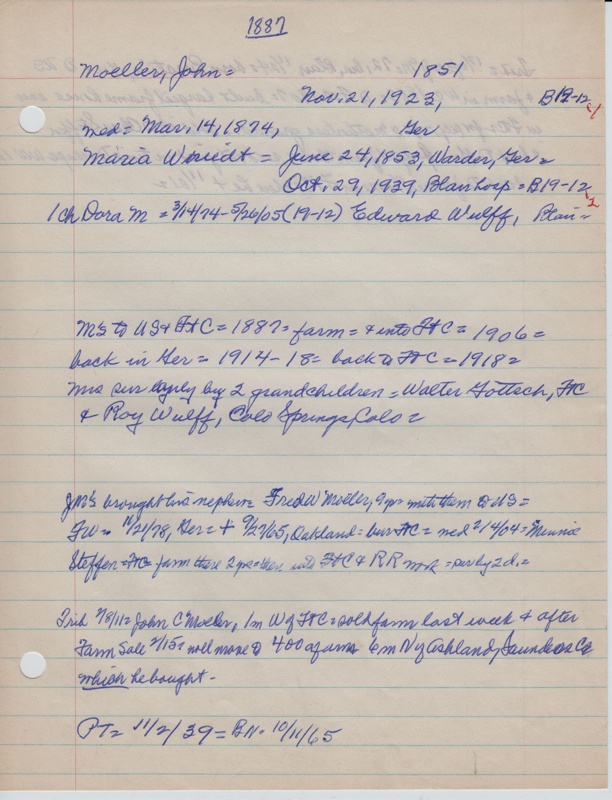 1887
Moeller, John = 1851
Nov. 21, 1923, B19-12
med = Mar. 14, 1874, Ger
Maria Weridt = June 24, 1853, Warder, Ger =
Oct. 29, 1939, Blairhosp = B19-12
1 ch Dora M = 3/14/74 - 5/26/05 (19-12) Edward Wulff, Blair =
M's to US & FtC = 1887 = farm = & into FtC = 1906 =
back in Ger = 1914 - 18 = back to FtC = 1918 =
Mrs sur only by 2 grandchildren = Walter Gottsch, FtC
& Roy Wulff, Colo Springs, Colo =
JM's brought his nephew = Fred W Moeller, 9 yr with them to US =
FW = 11/21/78, Ger = + 9/27/65, Oakland = bur FtC = med 2/14/04 = Minnie
Steffen = FtC = farm there 2 yrs = then into FtC & RR = sur by 2 d. =
Trib 2/8/11 = John C Moeller, 1m W of FtC = sold farm last week & after
Farm Sale 2/15 = will move to 400 a farm 6m N of Ashland, Saunders Co
which he bought -
PT = 11/2/39 = BN = 10/11/65